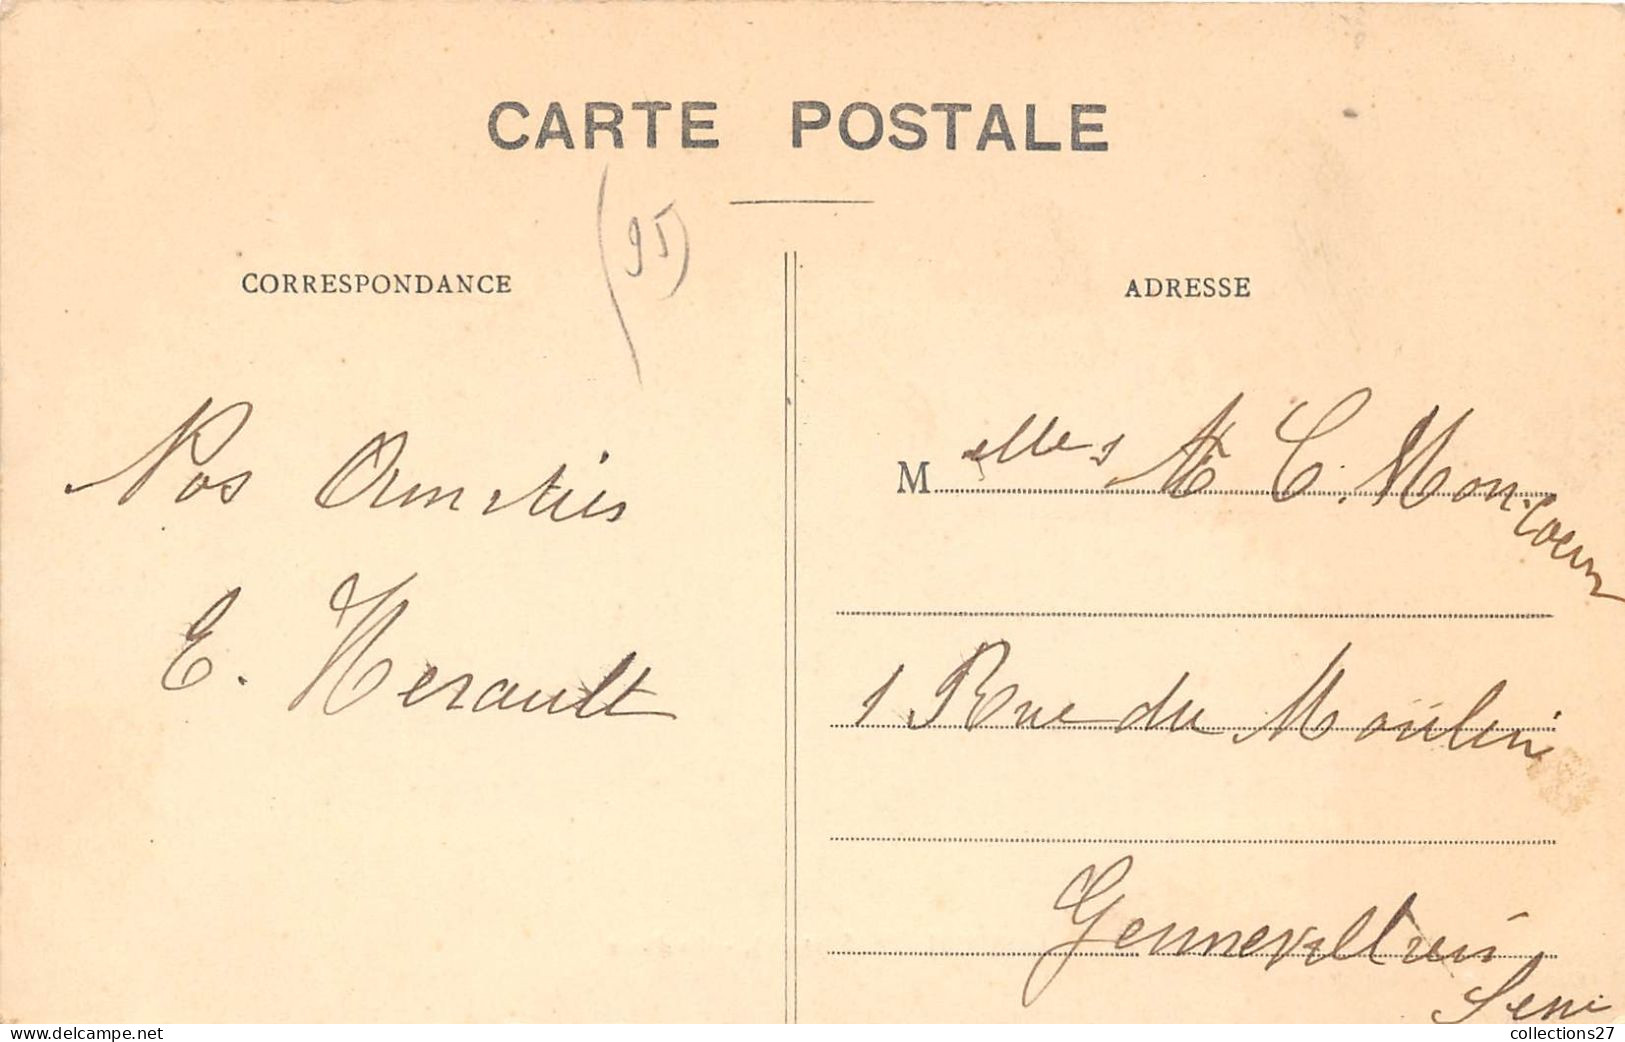 CARTE POSTALE
(95)
CORRESPONDANCE
Nos Amitiés
E. Herault
ADRESSE
Melles
C. Moncoeur
1 Rue du Moulin
Gennevilliers
Seine
collections27